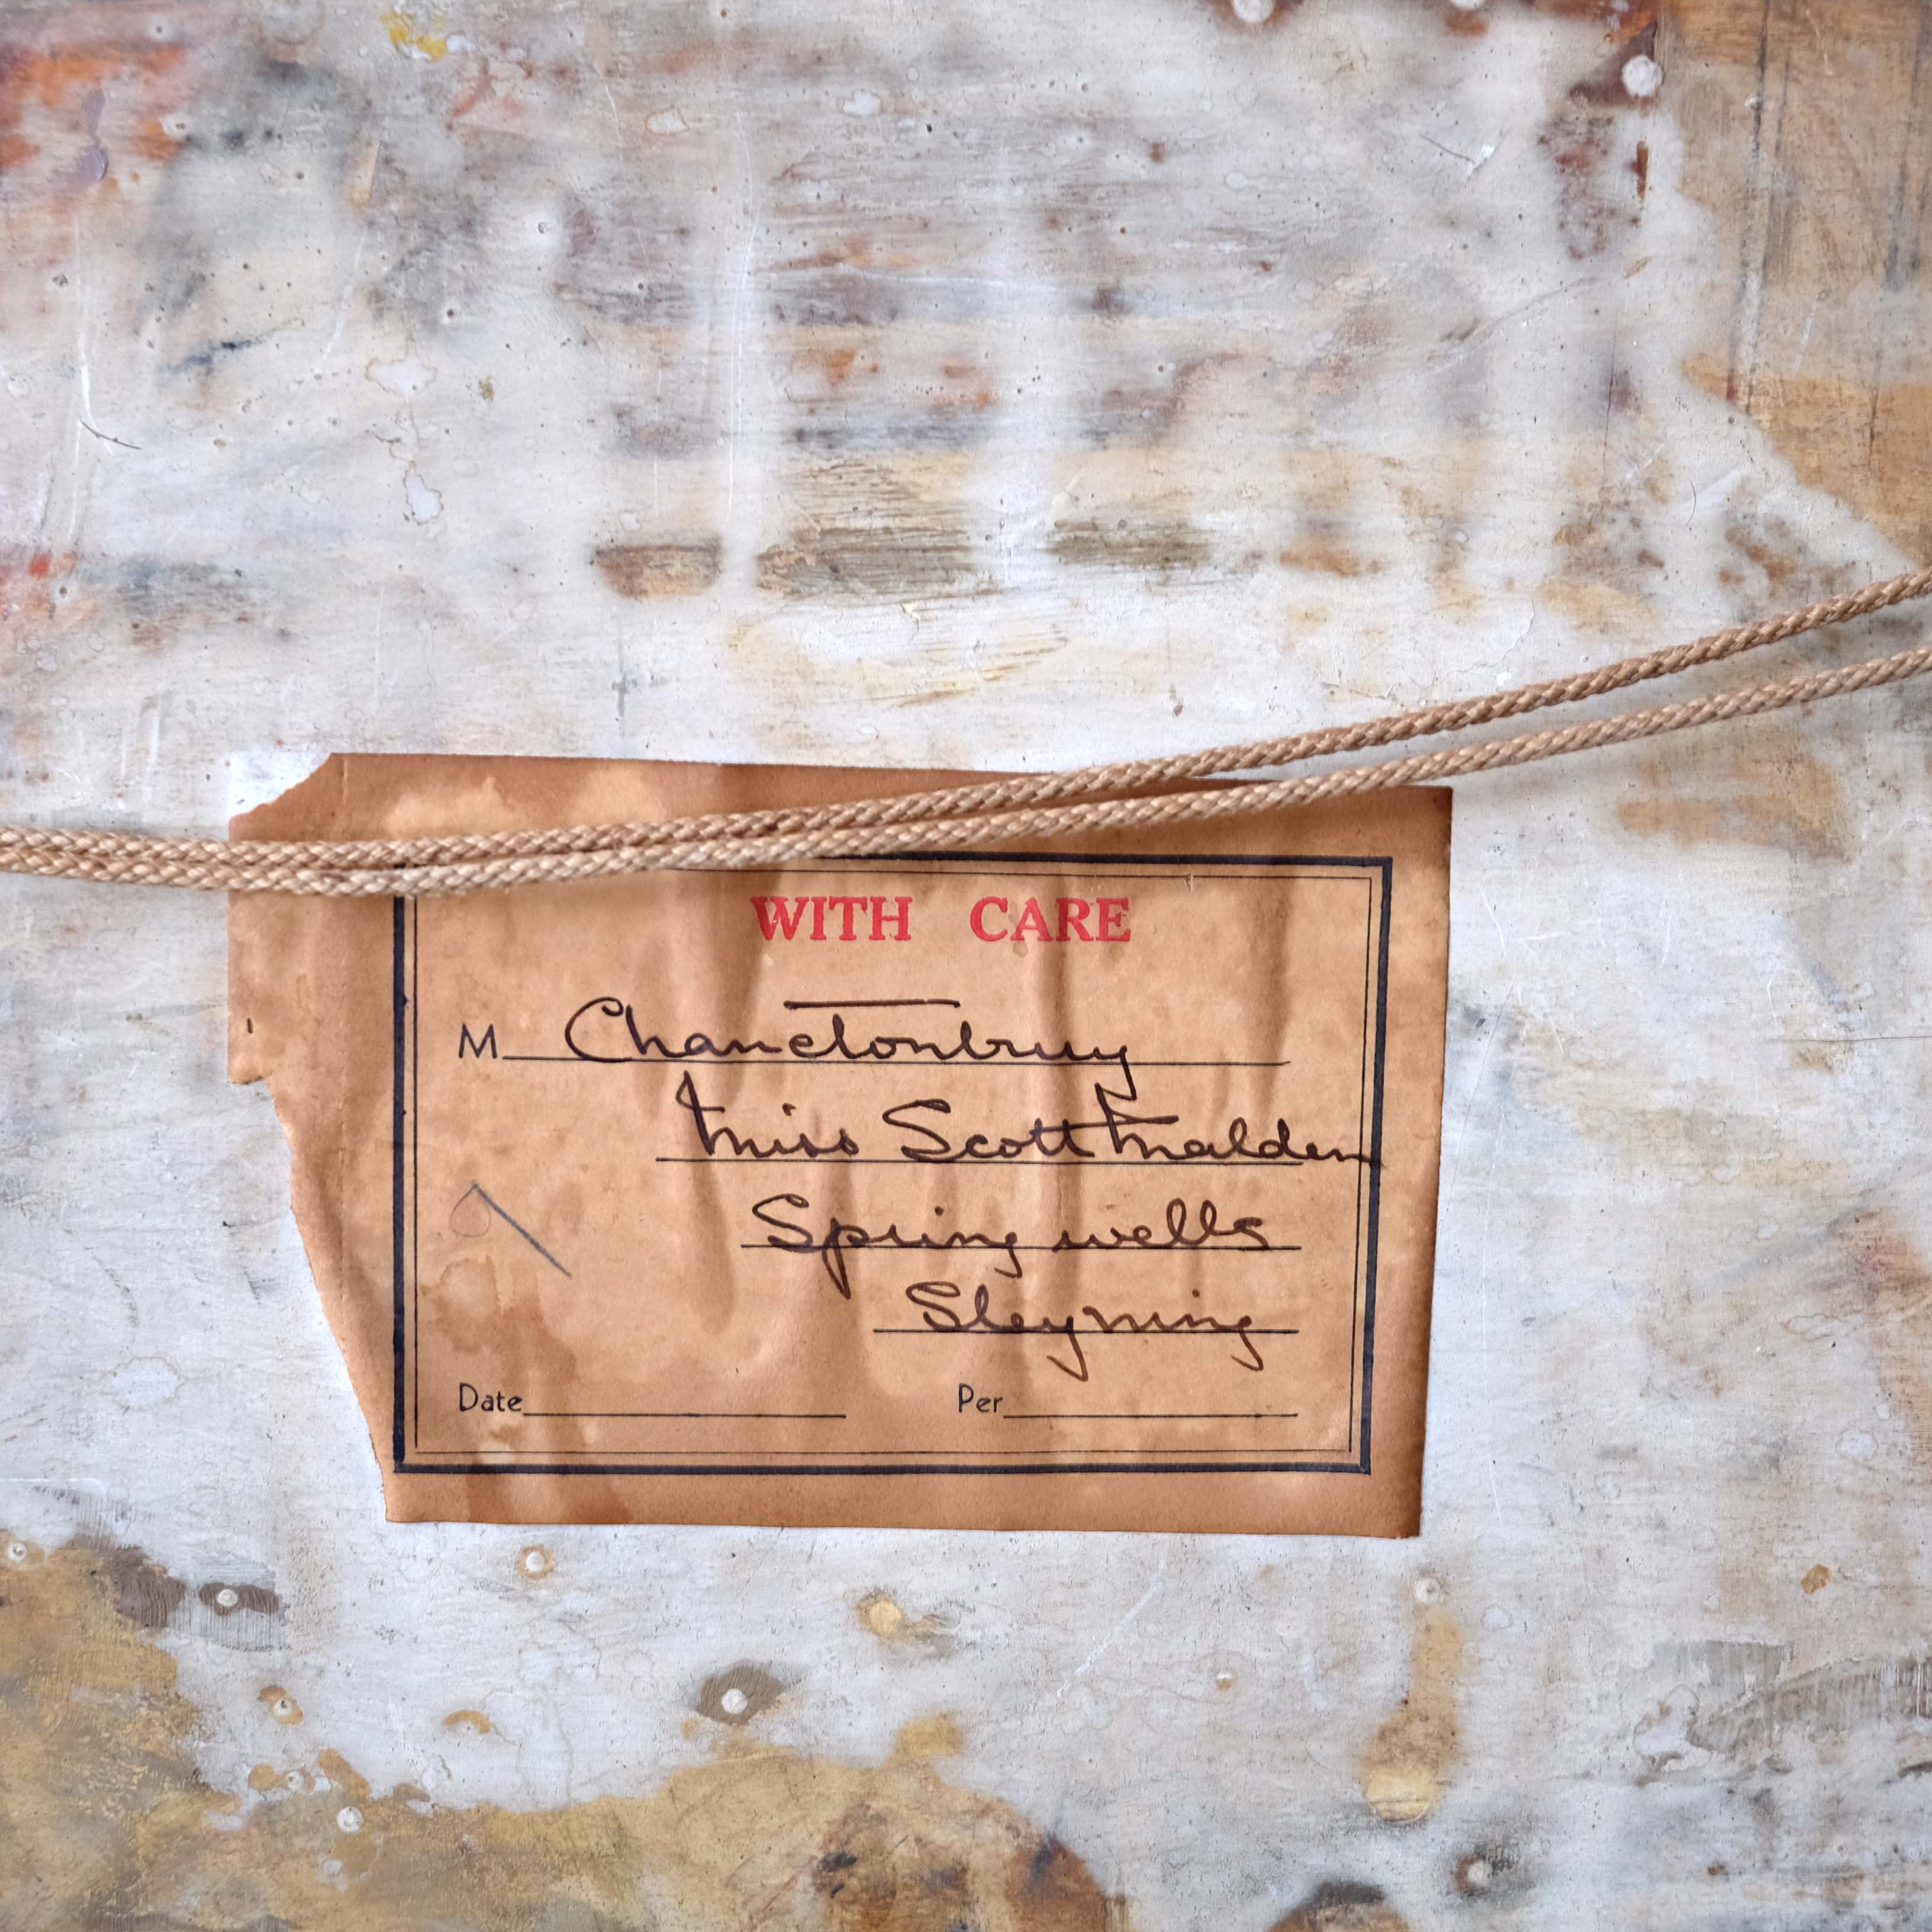 WITH CARE
M Chanctonbury
Miss Scott Malden
Spring wells
Steyning
Date Per